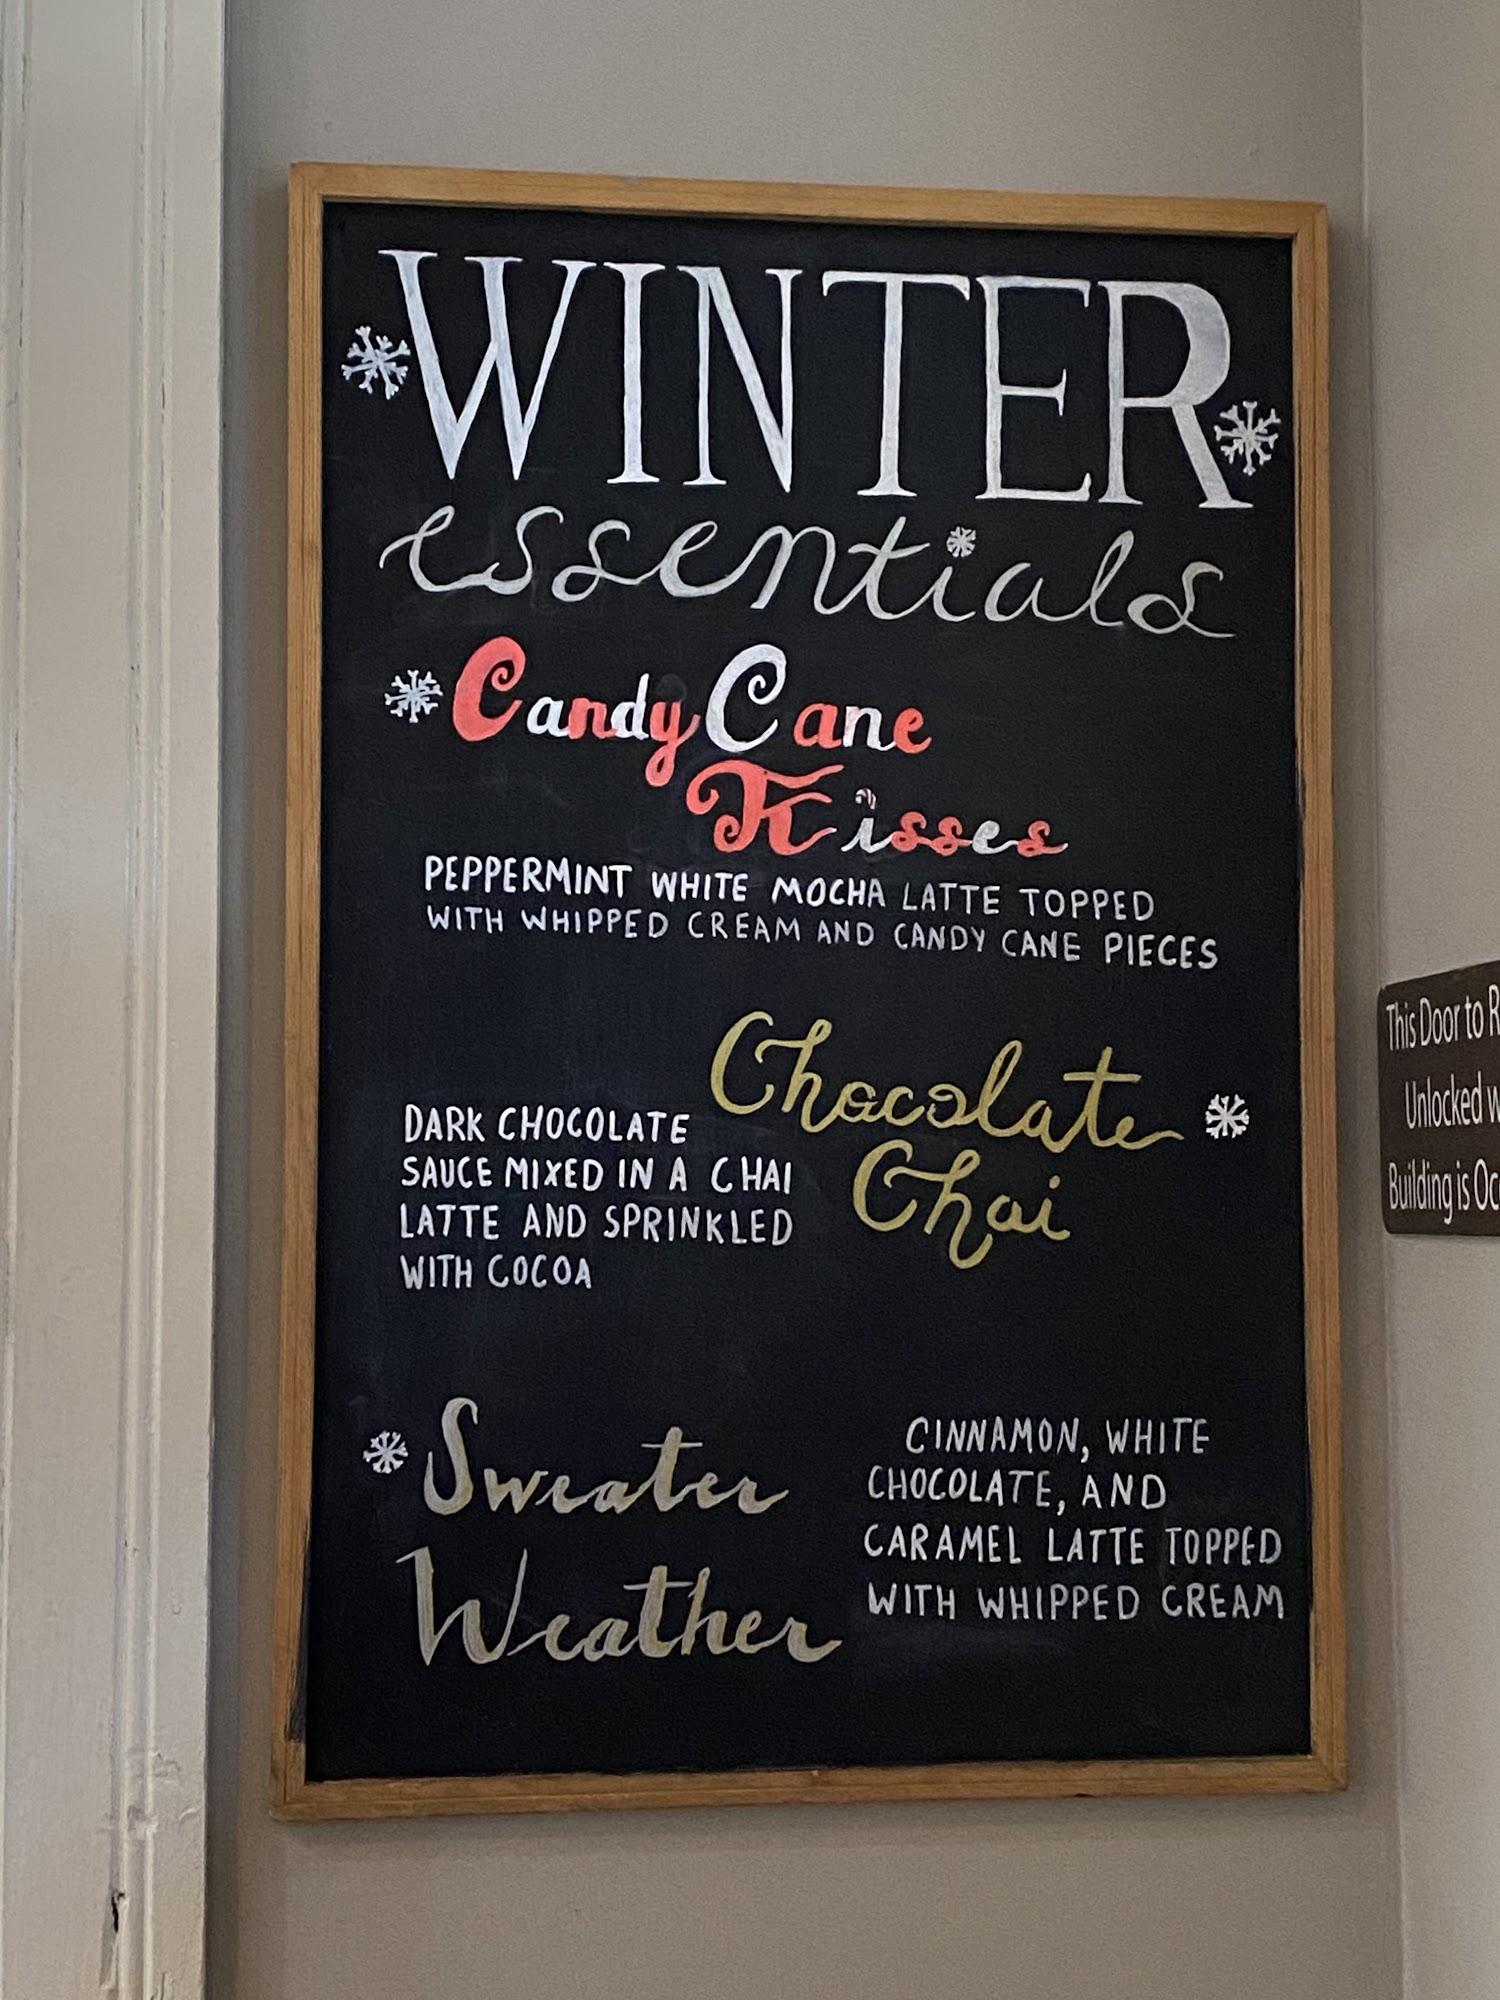 WINTER
essentials
Candy Cane
Kisses
PEPPERMINT WHITE MOCHA LATTE TOPPED
WITH WHIPPED CREAM AND CANDY CANE PIECES
Chocolate
Chai
DARK CHOCOLATE
SAUCE MIXED IN A CHAI
LATTE AND SPRINKLED
WITH COCOA
Sweater
Weather
CINNAMON, WHITE
CHOCOLATE, AND
CARAMEL LATTE TOPPED
WITH WHIPPED CREAM
This Door to
Unlocked
Building is